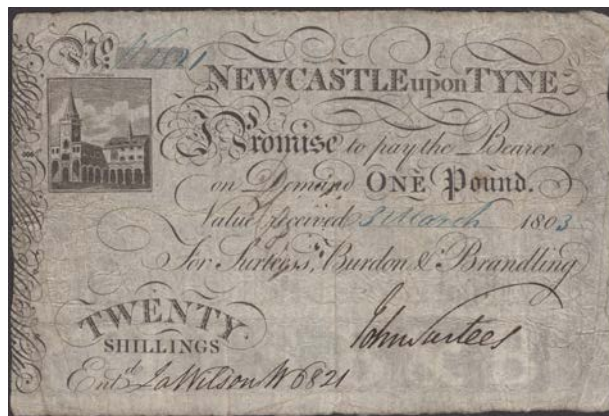 No. W6821
NEWCASTLE upon TYNE
I Promise to pay the Bearer
on Demand ONE Pound.
Value received 3 March 1803
For Surtees, Burdon & Brandling
TWENTY
SHILLINGS
John Surtees
Entd. Ja Wilson W6821